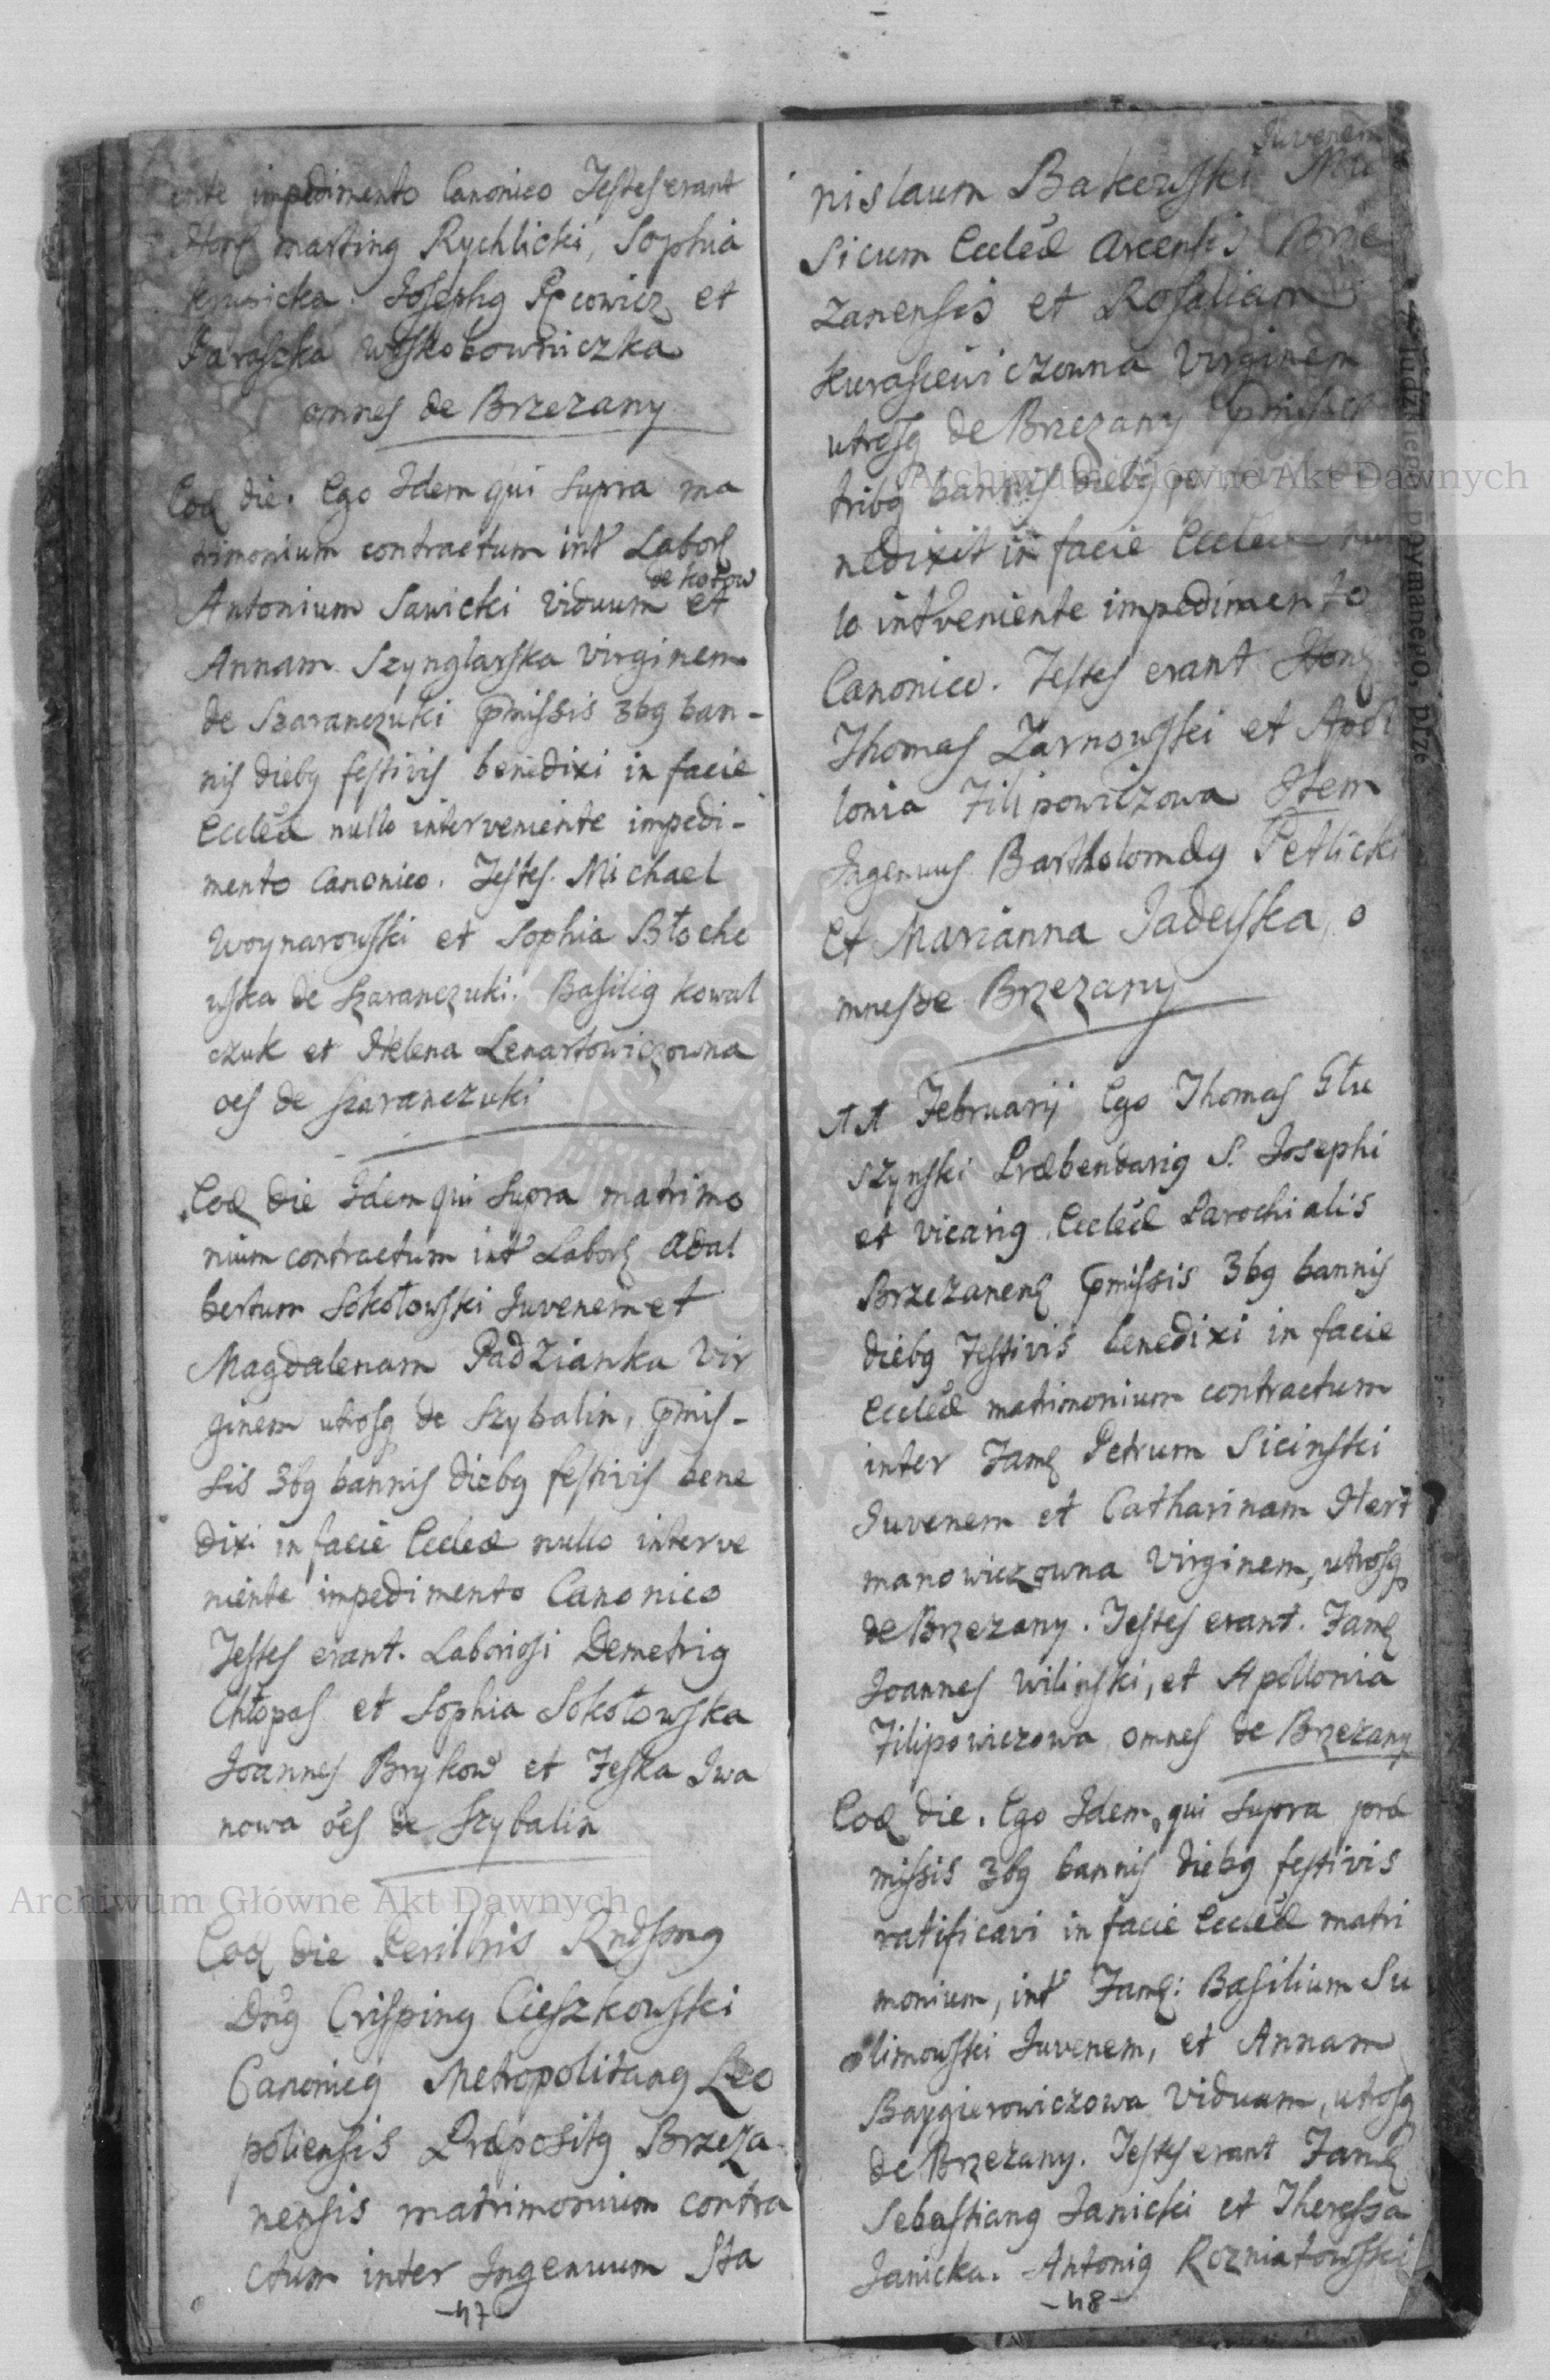 ente impedimento Canonico Testes erant
Hon martinq Rychlicki, Sophia
Krusicka. Josephq et
Paraszka Woskobowniczka
omnes de Brzezany
Eod die. Ego Idem qui Supra ma
trimonium contractum int Labor
de Kotow
Antonium Sawicki Viduum et
Annam Szynglarska Virginem
de Szaranczuki pmissis 3bq ban-
nis diebq festivis benedixi in facie
Eccleæ nullo interveniente impedi-
mento Canonico. Testes. Michael
Woynarowski et Sophia Błoche
wska de Szaranczuki. Basiliq Kowal
czuk et Helena Lenartowiczowna
oes de Szaranczuki
Eod die Idem qui Supra matrimo
nium contractum int Labor Adal
bertum Sokołowski Juvenem et
Magdalenam Padzianka Vir
ginem utrosq de Szybalin, pmis-
sis 3bq bannis diebq festivis bene
dixi in facie Eccleæ nullo interve
niente impedimento Canonico
Testes erant. Laboriosi Demetriq
Chłopas et Sophia Sokołowska
Joannes Brykow et Feska Iwa
nowa oes de Szybalin
Eod die Perillris Rndsmq
Dnq Crispinq Cieszkowski
Canonicq Metropolitanq Leo
poliensis Præpositq Brzeza
nensis matrimonium contra
ctum inter Ingenuum Sta
-47-
Juvenem
nislaum Bakowski Mu
sicum Eccleæ Arcensis Brze
zanensis et Rosaliam
Kurasiewiczowna Virginem
utrosq de Brzezany pmissis
tribq bannis diebq
nedixit in facie Eccleæ nul
lo intveniente impedimento
Canonico. Testes erant Hon
Thomas Zarnowski et Apol
lonia Filipowiczowa Item
Ingenuus Bartholomæq Petlicki
et Marianna Jadeyska, o
mnes de Brzezany
11 Februarij Ego Thomas Głu
szynski Præbendariq S. Josephi
et vicariq Eccleæ Parochialis
Brzezanen pmissis 3bq bannis
diebq festivis benedixi in facie
Eccleæ matrimonium contractum
inter Fam Petrum Sicinski
Juvenem et Catharinam Her
manowiczowna Virginem, utrosq
de Brzezany. Testes erant. Fam
Joannes Wilinski, et Apollonia
Filipowiczowa omnes de Brzezany
Eod die. Ego Idem, qui Supra præ
missis 3bq bannis diebq festivis
ratificavi in facie Eccleæ matri
monium, int Fam: Basilium Su
limowski Juvenem, et Annam
Baygierowiczowa Viduam, utrosq
de Brzezany. Testes erant Fam
Sebastianq Janicki et Theressa
Janicka. Antoniq Rozniatowski
-48-
Archiwum Główne Akt Dawnych
Archiwum Główne Akt Dawnych